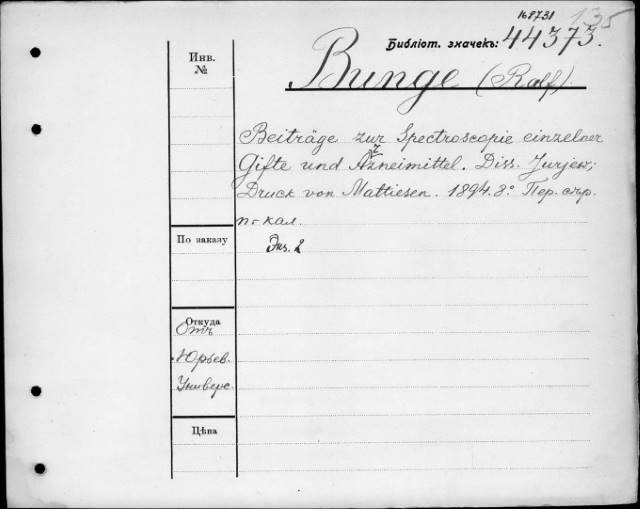 168731 135
Библіот. значекъ: 44373.
Инв. №
Bunge (Ralf).
Beiträge zur Spectroscopie einzelner
Gifte und Arzneimittel. Diss. Jurjew;
Druck von Mattiesen. 1894. 8° Пер. стр.
п-кал.
По заказу
Экз. 2
Откуда
Отъ
Юрьев.
Универс
Цѣна